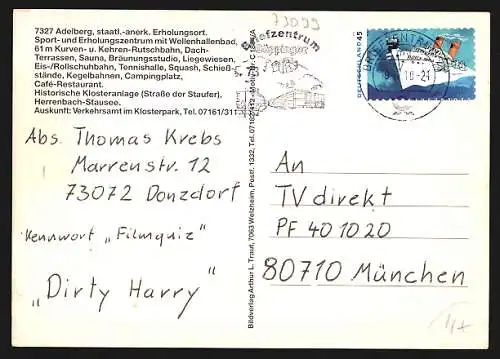 7327 Adelberg, staatl.-anerk. Erholungsort.
Sport- und Erholungszentrum mit Wellenhallenbad,
61 m Kurven- u. Kehren-Rutschbahn, Dach-
Terrassen, Sauna, Bräunungsstudio, Liegewiesen,
Eis-/Rollschuhbahn, Tennishalle, Squash, Schieß-
stände, Kegelbahnen, Campingplatz,
Café-Restaurant.
Historische Klosteranlage (Straße der Staufer),
Herrenbach-Stausee.
Auskunft: Verkehrsamt im Klosterpark, Tel. 07161/311
Abs. Thomas Krebs
Marrenstr. 12
73072 Donzdorf
Kennwort „Filmquiz"
„Dirty Harry"
Bildverlag Arthur L. Trauf, 7063 Welzheim, Postf. 1332, Tel. 07182
73099
Briefzentrum
Göppingen
DEUTSCHLAND 45
BRIEFZENTRUM
An
TV direkt
PF 40 10 20
80710 München